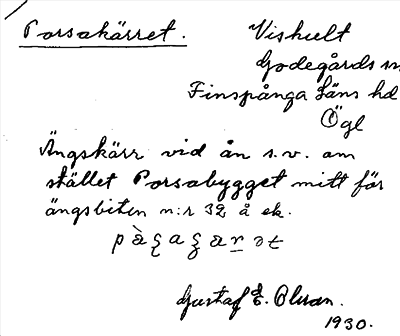 Porsakärret.
Viskult
Godegårds sn
Finspånga läns hd
Ögl
Ängskärr vid ån s.v. om
stället Porsabygget mitt för
ängsbiten n:r 32 å ek.
Gustaf E. Olsson.
1930.